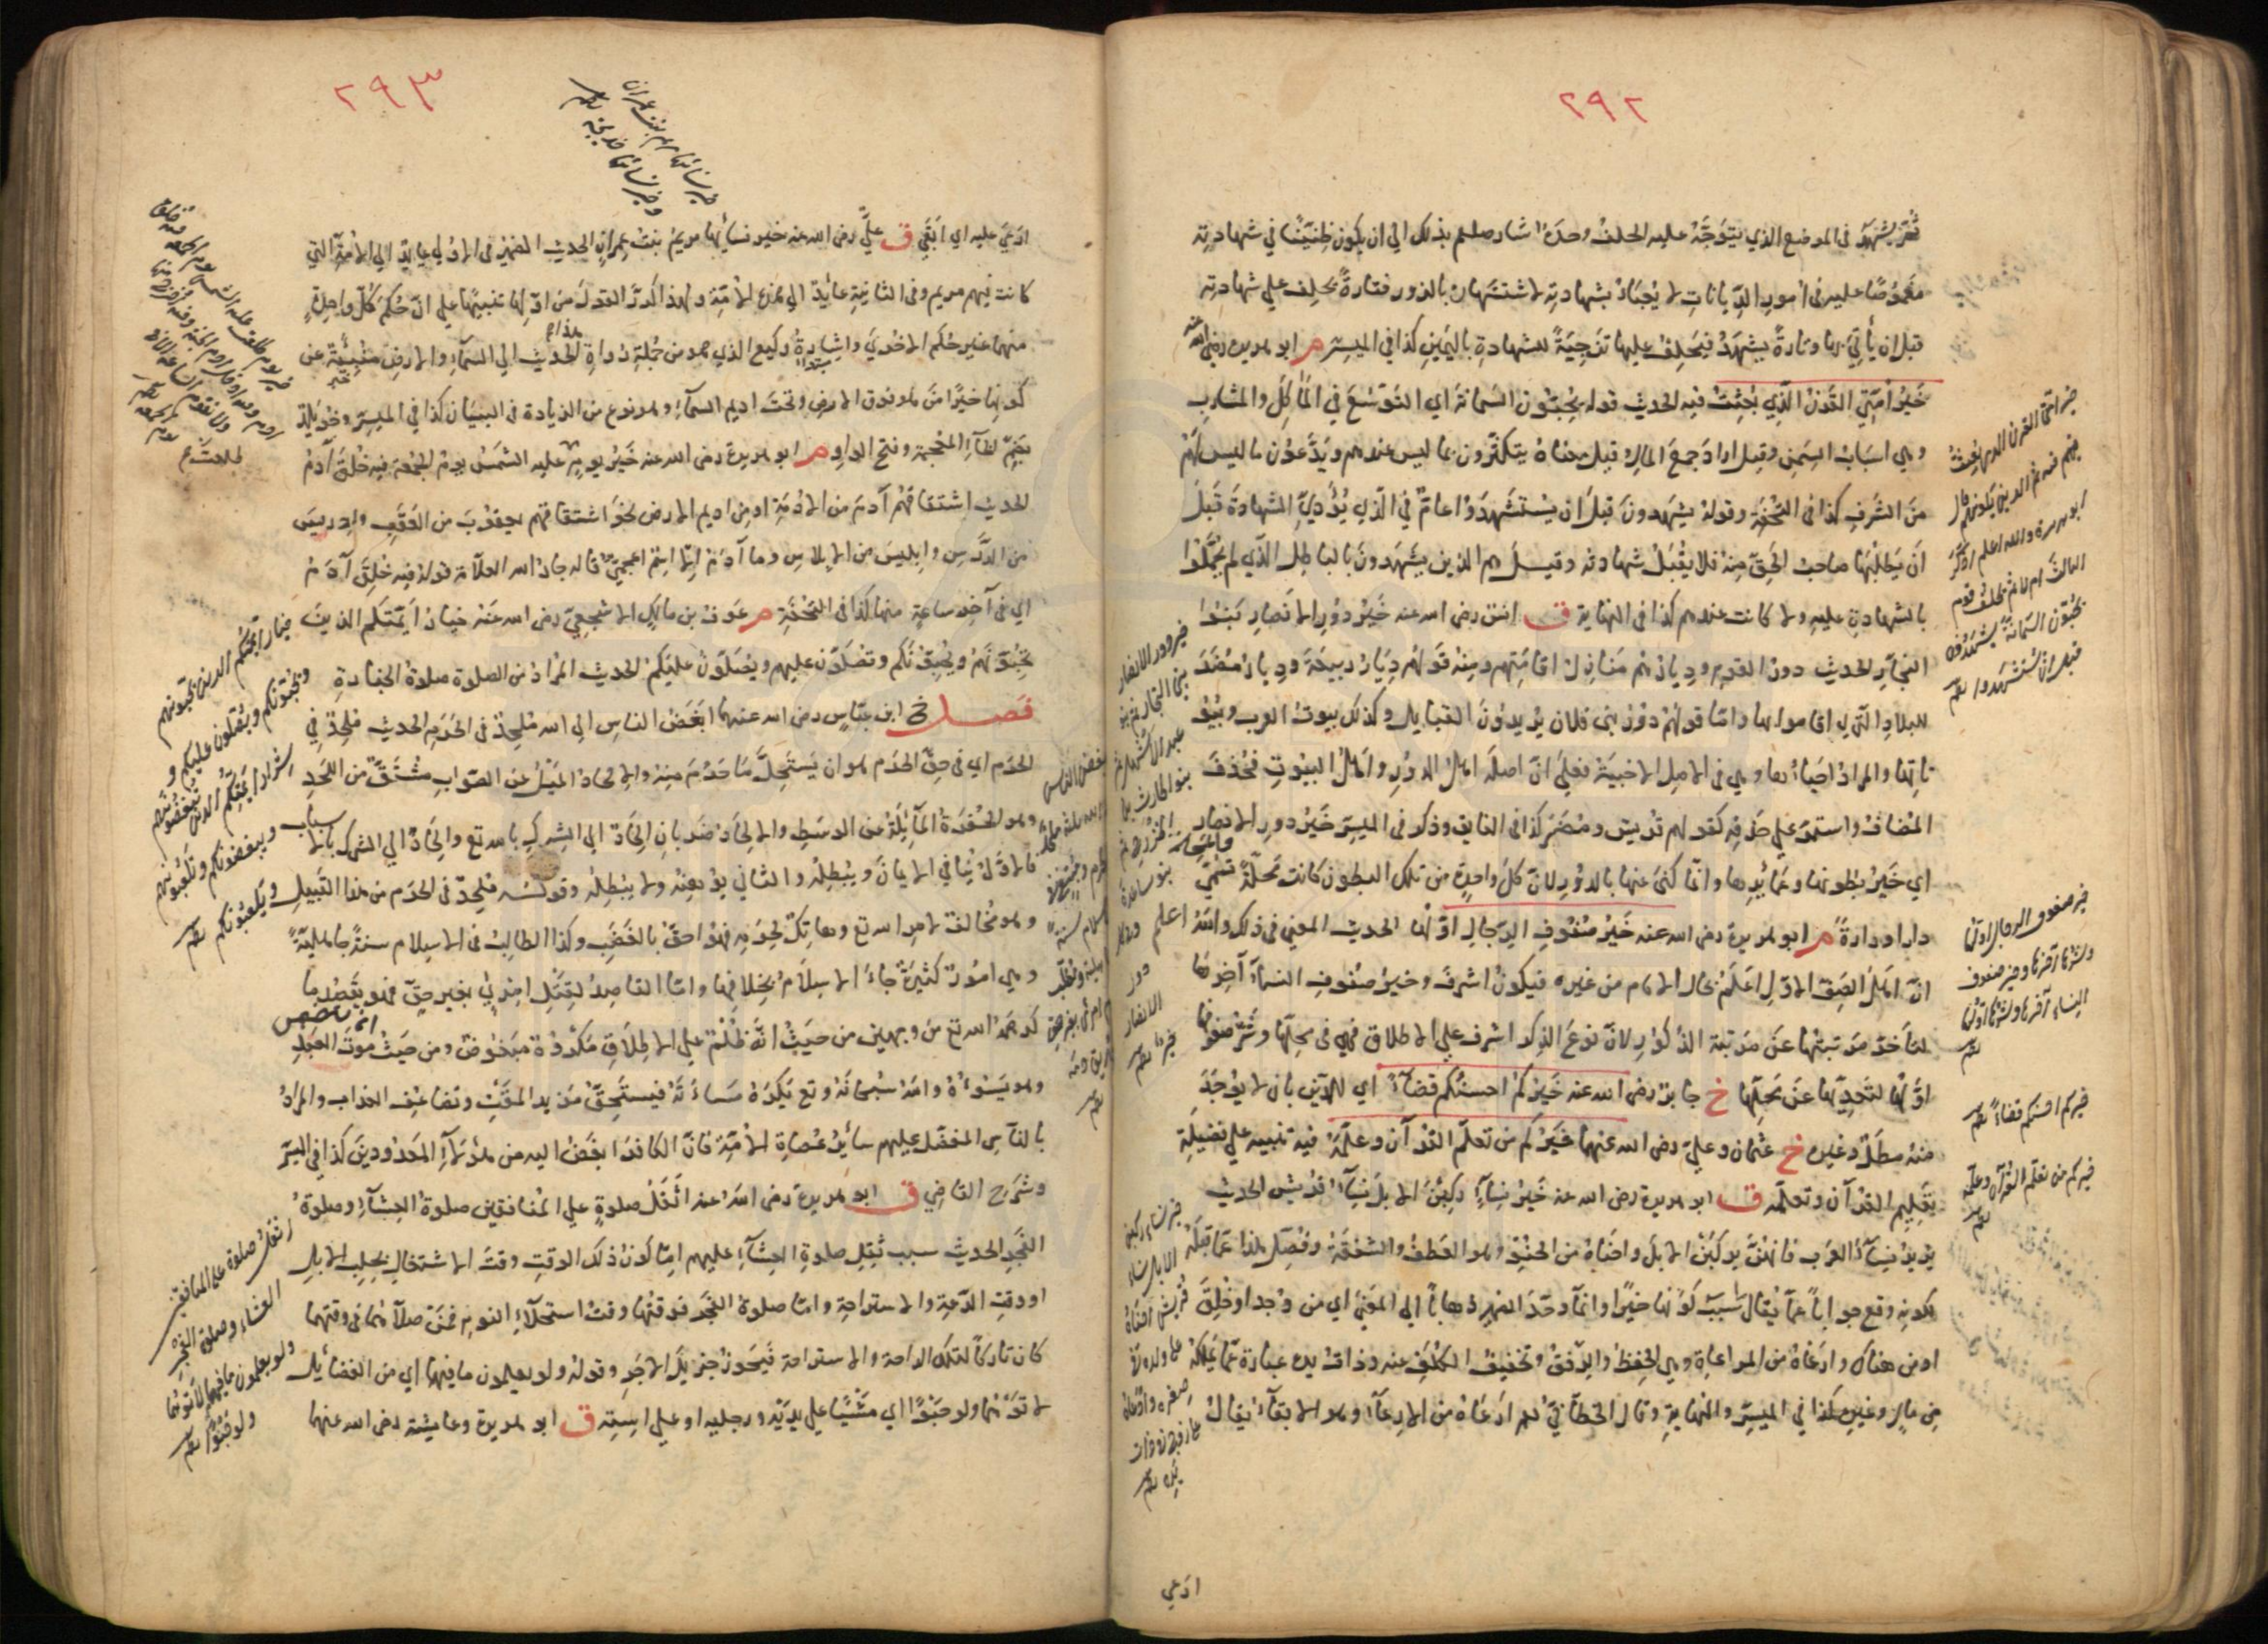 ٢٩٢
ثم يشهد في الموضع الذي يتوجه عليه الحلف وحده اشار صلعم بذلك الى ان يكون ظنينا في شهادته
مغموصا عليه في امور الديانات لا يجتاز بشهادته لاشتهاره بالزور فتارة يحلف على شهادته
قبل ان يأتي بها وتارة يشهد فيحلف عليها تزجية للشهادة باليمين كذا في الميسر م ابو هريرة رضي الله عنه
خير امتي القرن الذي بعثت فيه الحديث قوله يحبون السمانة اي التوسع في المآكل والمشارب
وهي اسباب السمن وقيل اراد جمع المال وقيل معناه يتكثرون بما ليس عندهم ويدعون ما ليس لهم
من الشرف كذا في التحفة وقوله يشهدون قبل ان يستشهدوا عام في الذي يؤدي الشهادة قبل
ان يطلبها صاحب الحق منه فلا يقبل شهادته وقيل هم الذين يشهدون بالباطل الذي لم يحملوا
بالشهادة عليه ولا كانت عندهم كذا في النهاية ق انس رضى الله عنه خير دور الانصار بنوا
النجار الحديث دور القوم وديارهم منازل اقامتهم ومنه قولهم ديار ربيعة وديار مضر
للبلاد التي اقاموا بها واما قولهم دور بني فلان يريدون القبايل وكذلك بيوت العرب وبيوت
تاتها والمراد احياءها وهي في الاصل الاخبية فعلى ان اصله اهل الدور واهل البيوت فحذف
المضاف واستمر على حذفه كقولهم قريش ومضر كذا في الفايق وذكر في الميسر خير دور الانصار
اي خير بطونها وعمايرها وانما كنى عنها بالدور لان كل واحدة من تلك البطون كانت محلة تسمى
دارا ودارة م ابو هريرة رضى الله عنه خير صفوف الرجال اولها الحديث المعنى في ذلك والله اعلم
ان اهل الصف الاول اعلم بحال الامام من غيره فيكون اشرف وخير صفوف النساء آخرها
لتأخر مرتبتها عن مرتبة الذكور لان نوع الذكر اشرف على الاطلاق فهي في محلها وشر صفوفها
اولها لتعديها عن محلها خ جابر رضى الله عنه خيركم احسنكم قضاء اي للدين بان لا يوجد
منه مطل وغيره خ عثمان وعلي رضى الله عنهما خيركم من تعلم القرآن وعلمه فيه تنبيه على فضيلة
تعليم القرآن وتعلمه ق ابو هريرة رضى الله عنه خير نساء ركبن الابل نساء قريش الحديث
يريد نساء العرب فانهن يركبن الابل واحناه من الحنو وهو العطف والشفقة وفصل هذا عما قبله
لكونه وقع جوابا عما يقال ما سبب كونها خيرا وانما وحد الضمير ذهابا الى المعنى اي من وجد او خلق
او من هناك وارعاه من المراعاة وهي الحفظ والرفق وتخفيف الكلف عنه وذات يده عبارة عما يملكه
من مال وغيره كذا في الميسر والنهاية وقال الخطابي ارعاه من الارعاء وهو الابقاء يقال
ادعي
خير امتي القرن الذي بعثت
فيهم ثم الذين يلونهم قال
ابو هريرة والله اعلم اذكر
الثالث ام لا ثم يخلف قوم
يحبون السمانة يشهدون
قبل ان يستشهدوا
خير دور الانصار
بني النجار ثم بنو
عبد الاشهل ثم
بنو الحارث بن
الخزرج ثم
بنو ساعدة
وفي كل
دور
الانصار
خير
خير صفوف الرجال اولها
وشرها آخرها وخير صفوف
النساء آخرها وشرها اولها
خيركم احسنكم قضاء
خيركم من تعلم القرآن وعلمه
خير نساء ركبن
الابل نساء
قريش احناه
على ولد في
صغره وارعاه
على زوج في ذات
يده
٢٩٣
ادعى عليه اي ابقي ق علي رضى الله عنه خير نسائها مريم بنت عمران الحديث الضمير في الاولى عايد الى الامة التي
كانت فيهم مريم وفي الثانية عائد الى هذه الامة ولهذا كرر القول من اولها تنبيها على ان حكم كل واحدة
منهما غير حكم الاخرى واشارة وكيع الذي هو من جملة رواة هذا الحديث الى السماء والارض منبئة عن
كونهما خيرا من هو فوق الارض وتحت اديم السماء وهو نوع من الزيادة في البيان كذا في الميسر وخويلد
بضم الخاء المعجمة وفتح الواو م ابو هريرة رضى الله عنه خير يوم طلعت عليه الشمس يوم الجمعة فيه خلق آدم
الحديث اشتقاقهم آدم من الادمة او من اديم الارض نحو اشتقاقهم يعقوب من العقب وادريس
من الدرس وابليس من الابلاس وما آدم الا اسم اعجمي قاله جار الله العلامة قوله فيه خلق آدم
اي في آخر ساعة منها كذا في التحفة م عوف بن مالك الاشجعي رضى الله عنه خيار ايمتكم الذين
تحبونهم ويحبونكم وتصلون عليهم ويصلون عليكم الحديث المراد من الصلوة صلوة الجنازة
فصل خ ابن عباس رضى الله عنهما ابغض الناس الى الله ملحد في الحرم الحديث ملحد في
الحرم اي في حق الحرم هو ان يستحل ما حرم منه والالحاد الميل عن الصواب مشتق من اللحد
وهو الحفرة المائلة من الوسط والالحاد ضربان الحاد الى الشرك بالله تع والحاد الى الشرك بالاسباب
فالاول ينافي الايمان ويبطله والثاني يوهنه ولا يبطله وقوله ملحد في الحرم من هذا القبيل
وهو مخالفة لامر الله تع وهاتك لحرمه فهو احق بالغضب وكذا الطالب في الاسلام سنة جاهلية
وهي امور كثيرة جاء الاسلام بخلافها واما القاصد لقتل امرئ بغير حق فهو يقصد ما
كرهه الله تع من وجهين من حيث انه ظلم على الاطلاق مكروه مبغوض ومن حيث موت العبد
وهو يسوءه والله سبحانه وتع يكره مساءته فيستحق مزيد المقت وتضاعف العذاب والمراد
بالناس المفضل عليهم سائر عصاة الامة فان الكافر ابغض اليه من هؤلاء المعدودين كذا في الميسر
وشرح القاضي ق ابو هريرة رضى الله عنه اثقل صلوة على المنافقين صلوة العشاء وصلوة
الفجر الحديث سبب ثقل صلوة العشاء عليهم اما كون ذلك الوقت وقت الاشتغال بحلب الابل
او وقت الدعة والاستراحة واما صلوة الفجر فوقتها وقت استحلاء النوم فمن صلاهما في وقتهما
كان تاركا لتلك الراحة والاستراحة فيحوز جزيل الاجر وقوله ولو يعلمون ما فيهما اي من الفضائل
لاتوهما ولو حبوا اي مشيا على يديه ورجليه او على استه ق ابو هريرة وعايشة رضى الله عنهما
خير نسائها مريم بنت عمران
وخير نسائها خديجة
خير يوم طلعت عليه الشمس يوم الجمعة فيه خلق
خيار ائمتكم الذين تحبونهم
ويحبونكم ويصلون عليكم و
شرار ائمتكم الذين تبغضونهم
ويبغضونكم وتلعنونهم
ويلعنونكم
اثقل صلوة على المنافقين
العشاء وصلوة الفجر
ولو يعلمون ما فيهما لاتوهما
ولو حبوا